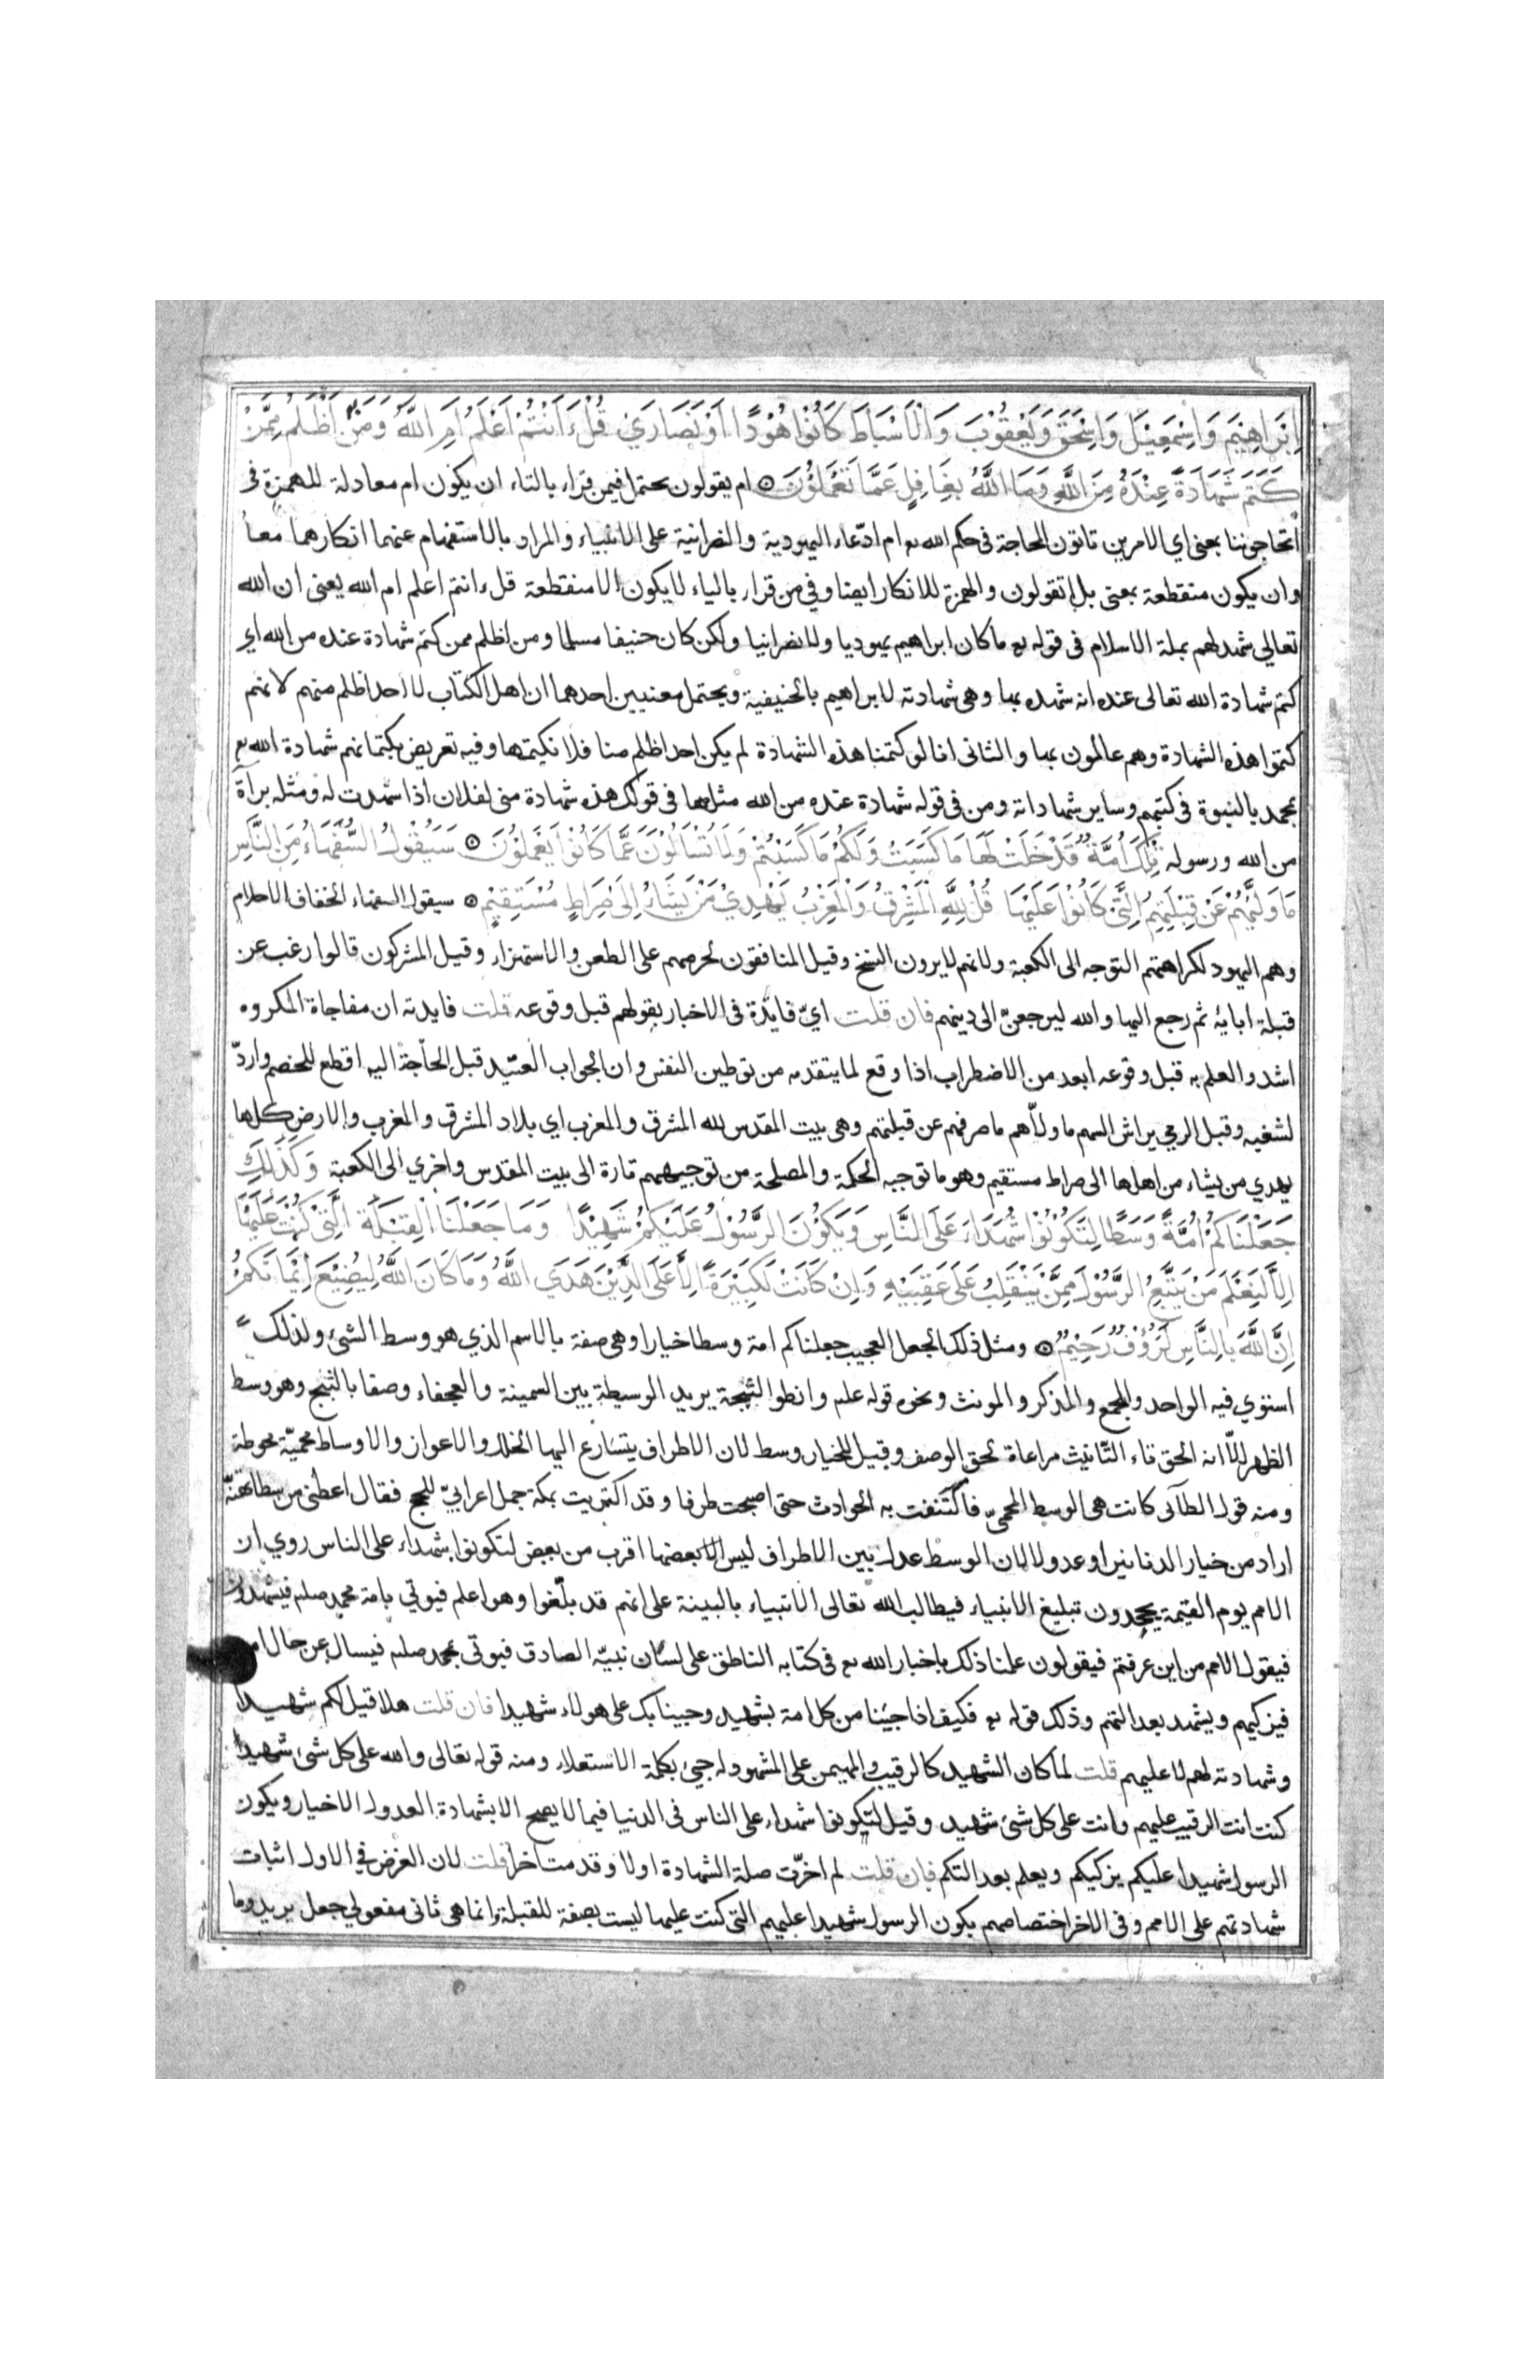 اِبْرَاهِيْمَ وَاِسْمٰعِيْلَ وَاِسْحٰقَ وَيَعْقُوْبَ وَالْاَسْبَاطَ كَانُوْا هُوْدًا اَوْ نَصَارَىٰ قُلْ ءَاَنْتُمْ اَعْلَمُ اَمِ اللّٰهُ وَمَنْ اَظْلَمُ مِمَّنْ
كَتَمَ شَهَادَةً عِنْدَهُ مِنَ اللّٰهِ وَمَا اللّٰهُ بِغَافِلٍ عَمَّا تَعْمَلُوْنَ ۞ ام يقولون يحتمل فيمن قراء بالتاء ان يكون ام معادلة للهمزة فى
أتحاجوننا بمعنى اي الامرين تاتون المحاجة فى حكم الله تع ام ادّعاء اليهودية والنصرانية على الانبياء والمراد بالاستفهام عنهما انكارهما معًا
وان يكون منقطعة بمعنى بل اتقولون والهمزة للانكار ايضا وفي من قراء بالياء لا يكون الا منقطعة قل ءانتم اعلم ام الله يعنى ان الله
تعالي شهد لهم بملة الاسلام فى قوله تع ما كان ابراهيم يهوديا ولا نصرانيا ولكن كان حنيفا مسلما ومن اظلم ممن كتم شهادة عنده من الله اي
كتم شهادة الله تعالى عنده انه شهده بها وهى شهادته لابراهيم بالحنيفية ويحتمل معنيين احدهما ان اهل الكتاب لا احد اظلم منهم لانهم
كتموا هذه الشهادة وهم عالمون بها والثانى انا لو كتمنا هذه الشهادة لم يكن احد اظلم منا فلا نكتمها وفيه تعريض بكتمانهم شهادة الله تع
بمحمد بالنبوة فى كتبهم وساير شهاداته ومن فى قوله شهادة عنده من الله مثلها فى قولك هذه شهادة منى لفلان اذا شهدت له ومثله برآة
من الله ورسوله تِلْكَ اُمَّةٌ قَدْ خَلَتْ لَهَا مَا كَسَبَتْ وَلَكُمْ مَا كَسَبْتُمْ وَلَا تُسْاَلُوْنَ عَمَّا كَانُوْا يَعْمَلُوْنَ ۞ سَيَقُوْلُ السُّفَهَاءُ مِنَ النَّاسِ
مَا وَلّٰيهُمْ عَنْ قِبْلَتِهِمُ الَّتِىْ كَانُوْا عَلَيْهَا قُلْ لِلّٰهِ الْمَشْرِقُ وَالْمَغْرِبُ يَهْدِيْ مَنْ يَشَاءُ اِلَى صِرَاطٍ مُسْتَقِيْمٍ ۞ سيقول السفهاء الخفاف الاحلام
وهم اليهود لكراهتهم التوجه الى الكعبة ولانهم لا يرون النسخ وقيل المنافقون لحرصهم على الطعن والاستهزاء وقيل المشركون قالوا رغب عن
قبلة ابايه ثم رجع اليها والله ليرجعنّ الى دينهم فان قلت ايّ فايدة فى الاخبار بقولهم قبل وقوعه قلت فايدته ان مفاجاة المكروه
اشد والعلم به قبل وقوعه ابعد من الاضطراب اذا وقع لما يتقدمه من توطين النفس وان الجواب العتيد قبل الحاجة اليه اقطع للخصم واردّ
لشغبه وقبل الرمي يراش السهم ما ولّاهم ما صرفهم عن قبلتهم وهى بيت المقدس لله المشرق والمغرب اي بلاد المشرق والمغرب والارض كلها
يهدي من يشاء من اهلها الى صراط مستقيم وهو ما توجبه الحكمة والمصلحة من توجيههم تارة الى بيت المقدس واخري الى الكعبة وَكَذٰلِكَ
جَعَلْنَاكُمْ اُمَّةً وَسَطًا لِتَكُوْنُوْا شُهَدَاءَ عَلَى النَّاسِ وَيَكُوْنَ الرَّسُوْلُ عَلَيْكُمْ شَهِيْدًا وَمَا جَعَلْنَا الْقِبْلَةَ الَّتِىْ كُنْتَ عَلَيْهَا
اِلَّا لِنَعْلَمَ مَنْ يَتَّبِعُ الرَّسُوْلَ مِمَّنْ يَنْقَلِبُ عَلَى عَقِبَيْهِ وَاِنْ كَانَتْ لَكَبِيْرَةً اِلَّا عَلَى الَّذِيْنَ هَدَى اللّٰهُ وَمَا كَانَ اللّٰهُ لِيُضِيْعَ اِيْمَانَكُمْ
اِنَّ اللّٰهَ بِالنَّاسِ لَرَؤُفٌ رَحِيْمٌ ۞ ومثل ذلك الجعل العجيب جعلناكم امة وسطا خيارا وهى صفة بالاسم الذي هو وسط الشئ ولذلك
استوي فيه الواحد والجمع والمذكر والمونث ونحوه قوله علم وانطوا الثبجة يريد الوسيطة بين السمينة والعجفاء وصفا بالثبج وهو وسط
الظهر الّا انه الحق تاء التّانيث مراعاة لحق الوصف وقيل للخيار وسط لان الاطراف يتسارع اليها الخلل والاعواز والاوساط محميّة محوطة
ومنه قول الطآئى كانت هى الوسط المحميّ فاكتنفت به الحوادث حتى اصبحت طرفا وقد اكتريت بمكة جمل اعرابيّ للحج فقال اعطنى من سطاتهنّه
اراد من خيار الدنانير او عدولا لان الوسط عدل بين الاطراف ليس الى بعضها اقرب من بعض لتكونوا شهداء على الناس روي ان
الامم يوم القيمة يجحدون تبليغ الانبياء فيطالب الله تعالى الانبياء بالبينة على انهم قد بلّغوا وهو اعلم فيوتي بامة محمد صلم فيشهدون
فيقول الامم من اين عرفتم فيقولون علمنا ذلك باخبار الله تع فى كتابه الناطق على لسان نبيّه الصادق فيوتى بمحمد صلم فيسال عن حال
فيزكيهم ويشهد بعدالتهم وذلك قوله تع فكيف اذا جئنا من كل امة بشهيد وجينا بك على هولاء شهيدا فان قلت هلا قيل لكم شهيدا
وشهادته لهم لا عليهم قلت لما كان الشهيد كالرقيب والمهيمن على المشهود له جيئ بكلمة الاستعلاء ومنه قوله تعالى والله على كل شئ شهيد
كنت انت الرقيب عليهم وانت على كل شئ شهيد وقيل لتكونوا شهداء على الناس فى الدنيا فيما لا يصح الا بشهادة العدول الاخيار ويكون
الرسول شهيدا عليكم يزكيكم ويعلم بعدالتكم فان قلت لم اخرّت صلة الشهادة اولا وقدمت اخرا قلت لان الغرض في الاول اثبات
شهادتهم على الامم وفى الاخر اختصاصهم بكون الرسول شهيدا عليهم التى كنت عليها ليست بصفة للقبلة وانما هى ثانى مفعولي جعل يريد وما